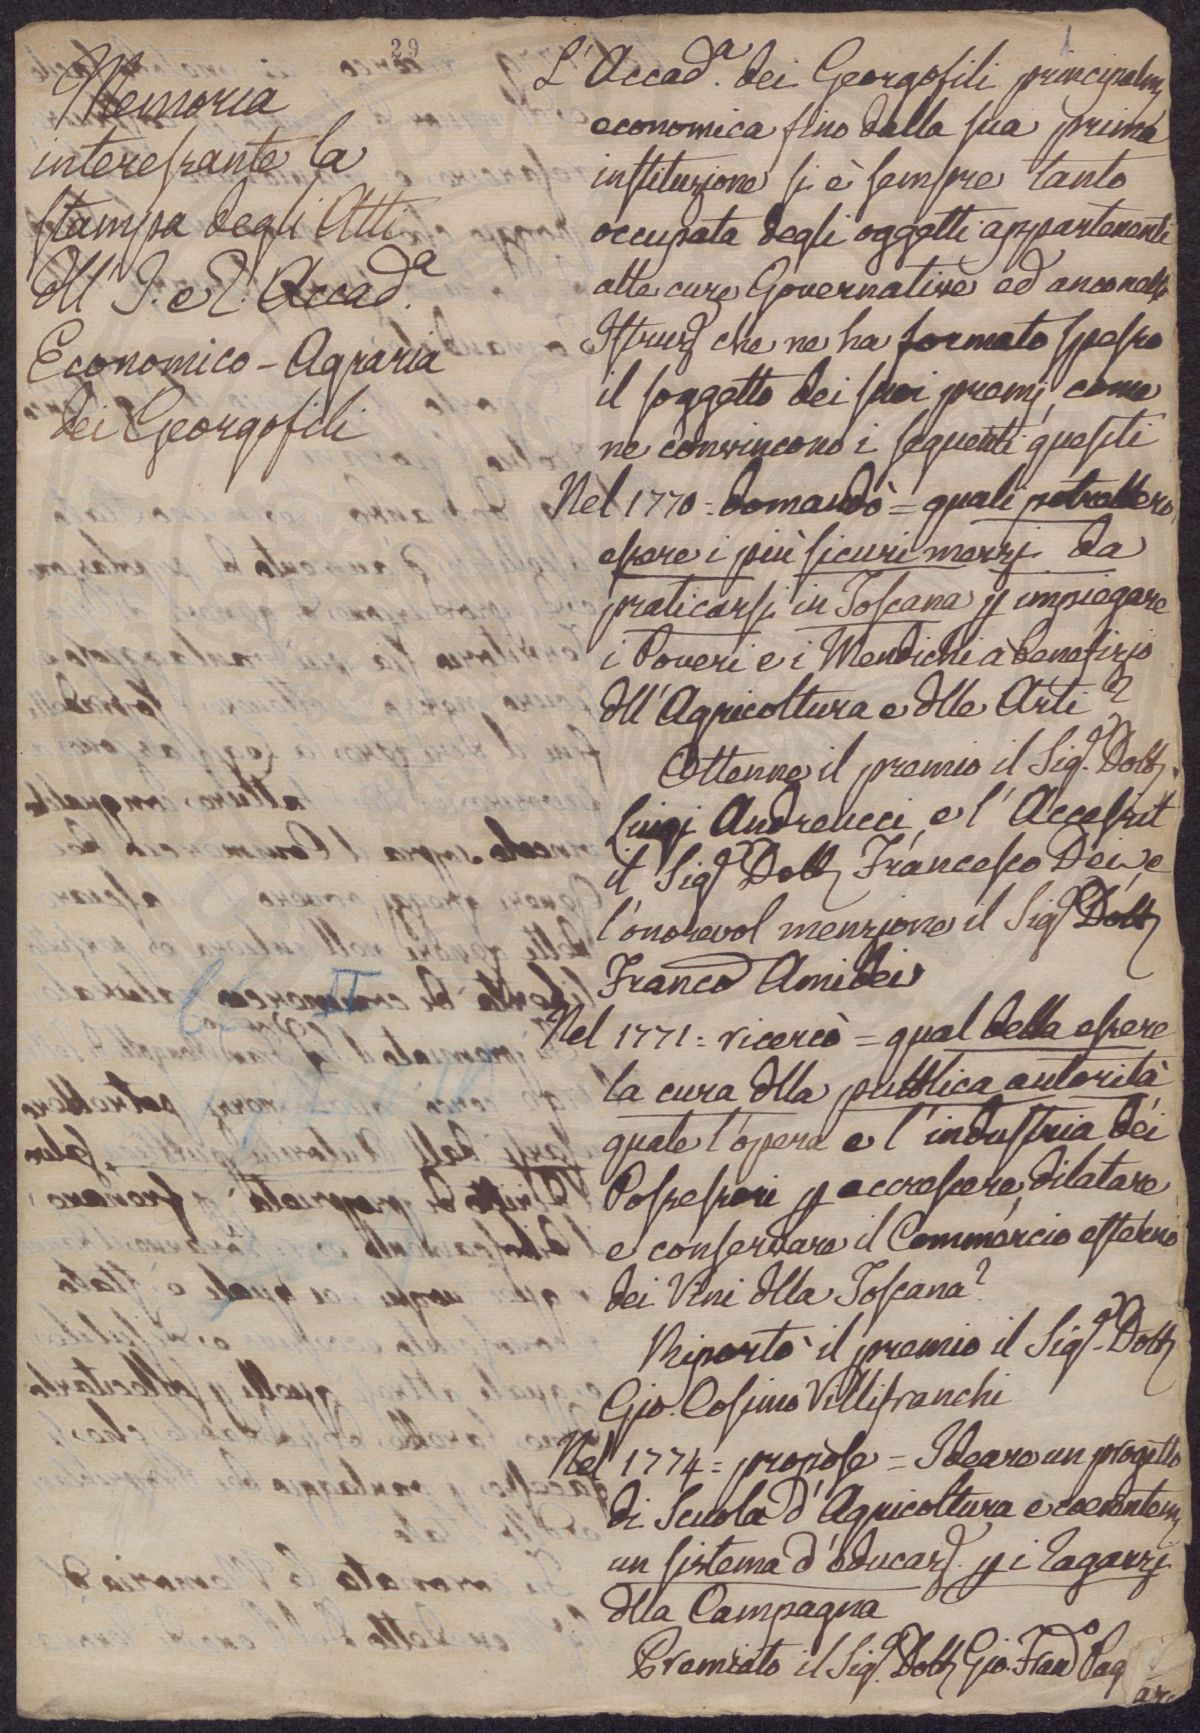 29
1
Memoria
interessante la
stampa degli Atti
dll' I. e R. Accad.a
Economico-Agraria
dei Georgofili
L'Accad.a dei Georgofili principalm
economica fino dalla sua prima
instituzione si è sempre tanto
occupata degli oggetti appartenenti
alle cure Governative ed ancor
Istruz che ne ha formato spesso
il soggetto dei suoi premj, come
ne convincono i seguenti quesiti
Nel 1770 = domandò = quali potrebbero
essere i più sicuri mezzj da
praticarsi in Toscana p impiegare
i Poveri e i Mendichi a benefizio
dll'Agricoltura e dlle Arti?
Ottenne il premio il Sig.r Dott.
Luigi Andreucci, e l'Accessit
il Sig.r Dott Francesco e
l'onorevol menzione il Sig.r Dott
Franco Amidei
Nel 1771 = ricercò = qual debba essere
la cura dlla pubblica autorità
quale l'opera e l'industria dei
Possessori p accrescere, dilatare,
e conservare il Commercio esterno
dei Vini dlla Toscana?
Riportò il premio il Sig.r Dott
Gio. Cosimo Villifranchi
Nel 1774 = propose = Ideare un progetto
di Scuola d'Agricoltura e coerentem
un sistema d'educaz. p i Ragazzi
dlla Campagna
Premiato il Sig.r Dott Gio. Fran.o Pag